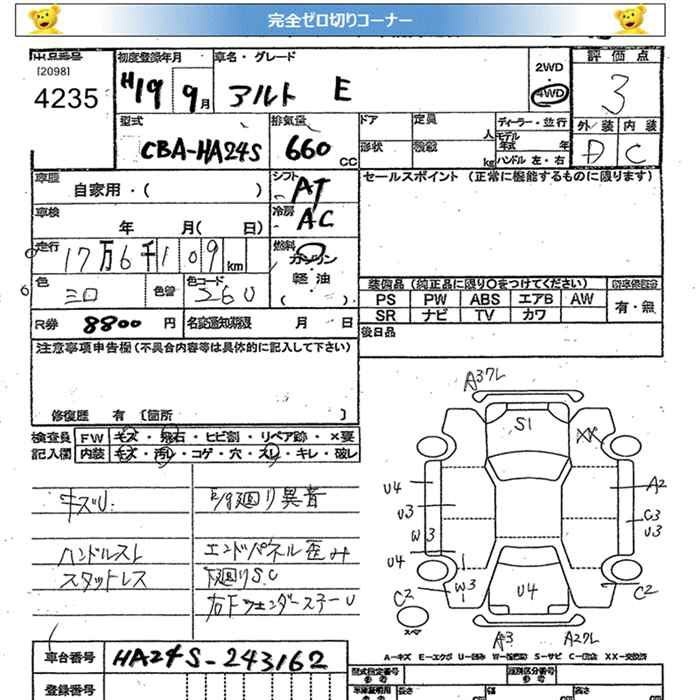 完全ゼロ切りコーナー
出品番号 初度登録年月 車名・グレード 2WD 評価点
[2098]
4235 H19 9月 アルト E 4WD 3
型式 排気量 ドア 定員 人 ディーラー・並行 外装 内装
CBA-HA24S 660 CC 形状 積載 kg モデル年式 年 D C
ハンドル 左・右
車歴 自家用・( ) シフト AT セールスポイント (正常に機能するものに限ります)
車検 年 月( 日) 冷房 AC
走行 17万6千109km 燃料 ガソリン
軽油
( )
色 シロ 色替 色コード 26U 装備品 (純正品に限り○をつけてください)
PS PW ABS エアB AW 有・無
SR ナビ TV カワ
R券 8800円 名変通知期限 月 日 後日品
注意事項申告欄(不具合内容等は具体的に記入して下さい)
修復歴 有 〔箇所 〕
検査員 FW キズ・飛石・ヒビ割・リペア跡・×要
記入欄 内装 キズ・汚レ・コゲ・穴・スレ・キレ・破レ
キズU.
E/g廻り異音
ハンドルスレ エンドパネル歪み
スタットレス 下廻りS.C
右Fフェンダーステーu
A3ワレ
S1
XX
U4
A2
U3
C3
U3
W3
U4
W3
U4
C2
C2
スペア
A3 A2ワレ
A-キズ E-エクボ U-凹み W-補修跡 S-サビ C-腐食 XX-交換済
車台番号 HA24S-243162
型式指定番号 類別区分番号
参考 参考
登録番号 長さ 幅 高さ